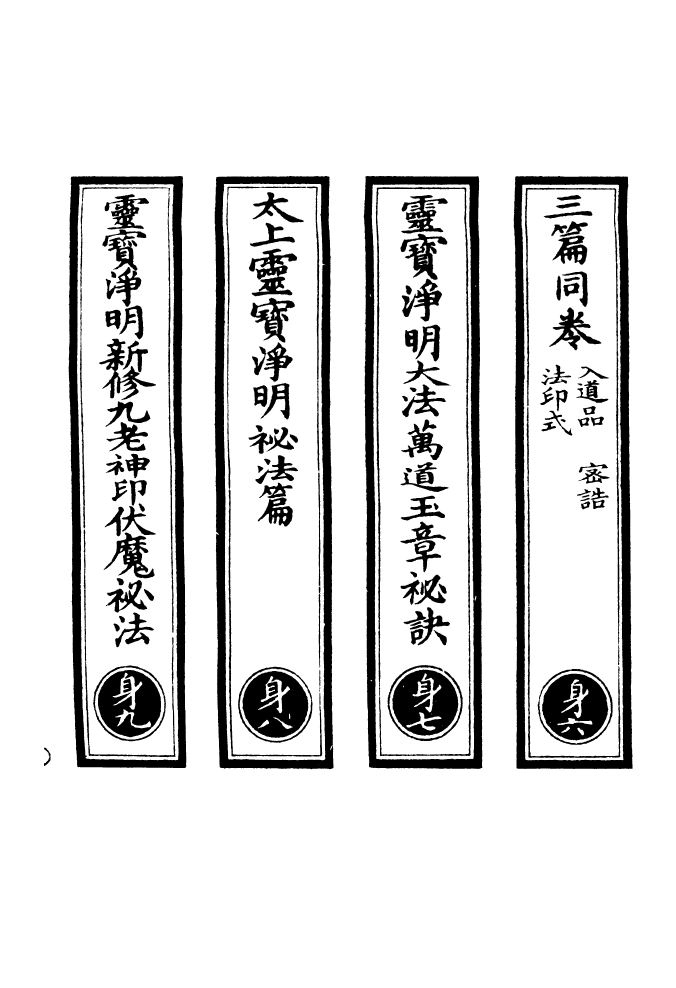 三篇同卷
入道品　密誥
法印式
身六
靈寶淨明大法萬道玉章祕訣
身七
太上靈寶淨明祕法篇
身八
靈寶淨明新修九老神印伏魔祕法
身九